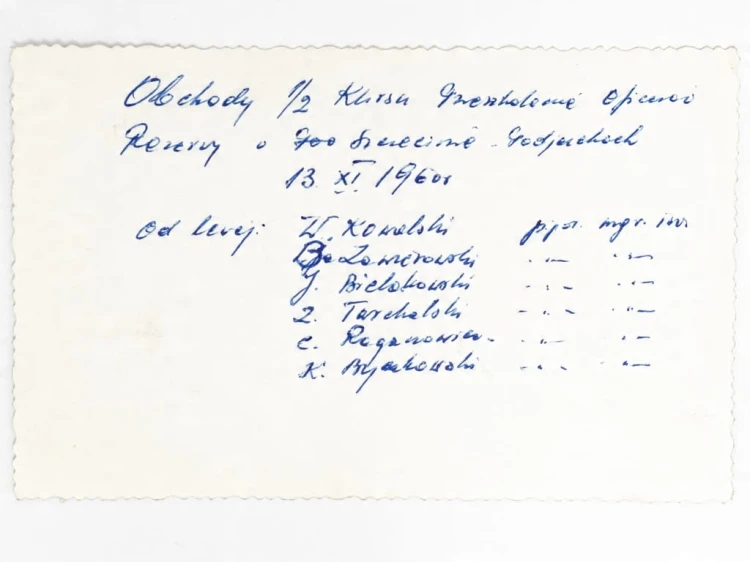 Obchody 1/2 Kursu Przeszkolenia Oficerów
Rezerwy w Szczecinie - Podjuchach
13. XI. 1960r
Od lewej: W. Kowalski ppor. mgr. inż
-"- -"-
J. Bielakowski -"- -"-
Z. Tarchalski -"- -"-
C. Roganowicz -"- -"-
K. Byczkowski -"- -"-